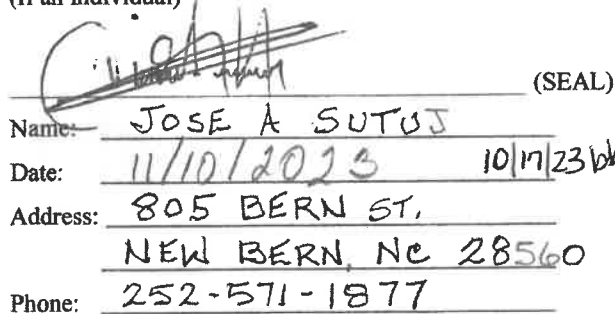 (If an individual)
(SEAL)
Name: JOSE A SUTUJ
Date: 11/10/2023 10/17/23 bk
Address: 805 BERN ST.
NEW BERN, NC 28560
Phone: 252-571-1877